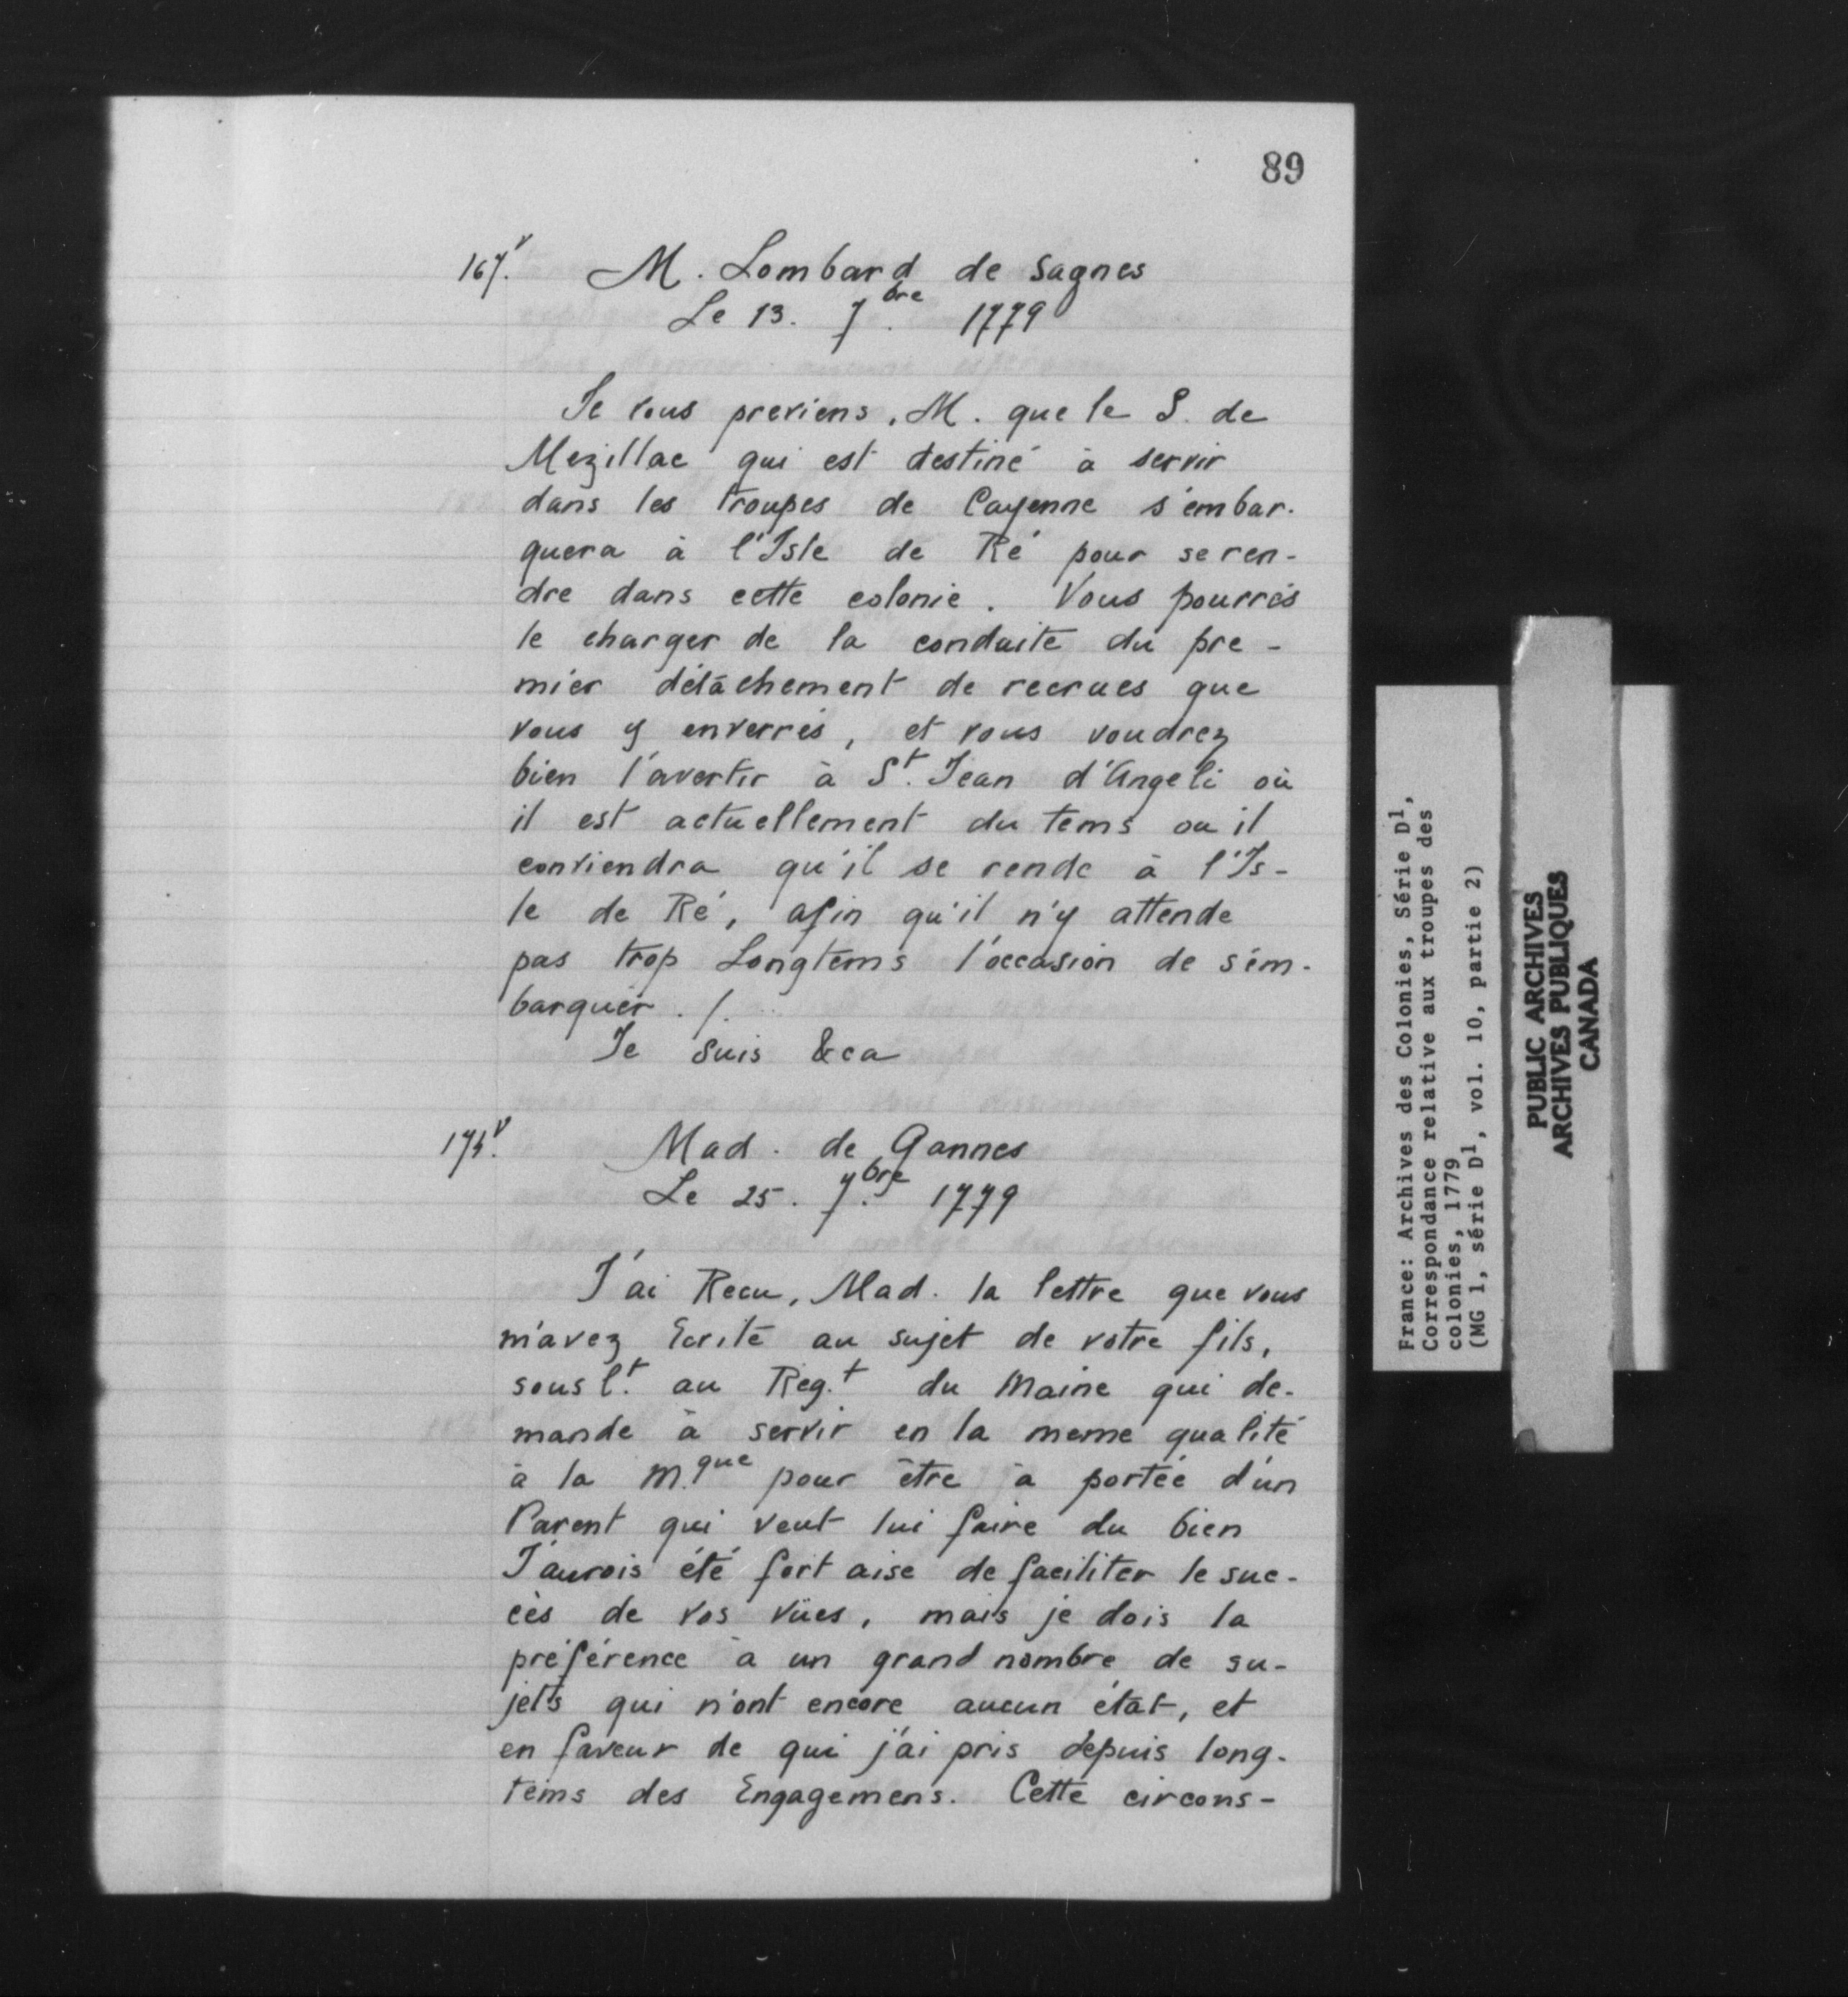 89
167.v M. Lombard de Sagnes
Le 13. 7.bre 1779
Je vous previens, M. que le S. de
Mezillac qui est destiné à servir
dans les troupes de Cayenne s'embar-
quera à l'Isle de Ré pour se ren-
dre dans cette colonie. Vous pourrés
le charger de la conduite du pre-
mier détachement de recrues que
vous y enverrés, et vous voudrez
bien l'avertir à St. Jean d'Angeli où
il est actuellement du tems ou il
conviendra qu'il se rende à l'Is-
le de Ré, afin qu'il n'y attende
pas trop Longtems l'occasion de s'em-
barquer ./.
Je suis &ca
Mad. de Gannes
Le 25. 7.bre 1779
J'ai Recu, Mad. la lettre que vous
m'avez Ecrite au sujet de votre fils,
sous lt. au Reg.t du Maine qui de-
mande à servir en la meme qualité
à la M.que pour être à portée d'un
Parent qui veut lui faire du bien
J'aurois été fort aise de faciliter le suc-
cès de vos vües, mais je dois la
préférence à un grand nombre de su-
jets qui n'ont encore aucun état, et
en faveur de qui j'ai pris depuis long-
tems des Engagemens. Cette circons-
France: Archives des Colonies, Série D1,
Correspondance relative aux troupes des
colonies, 1779
(MG 1, série D1, vol. 10, partie 2)
PUBLIC ARCHIVES
ARCHIVES PUBLIQUES
CANADA